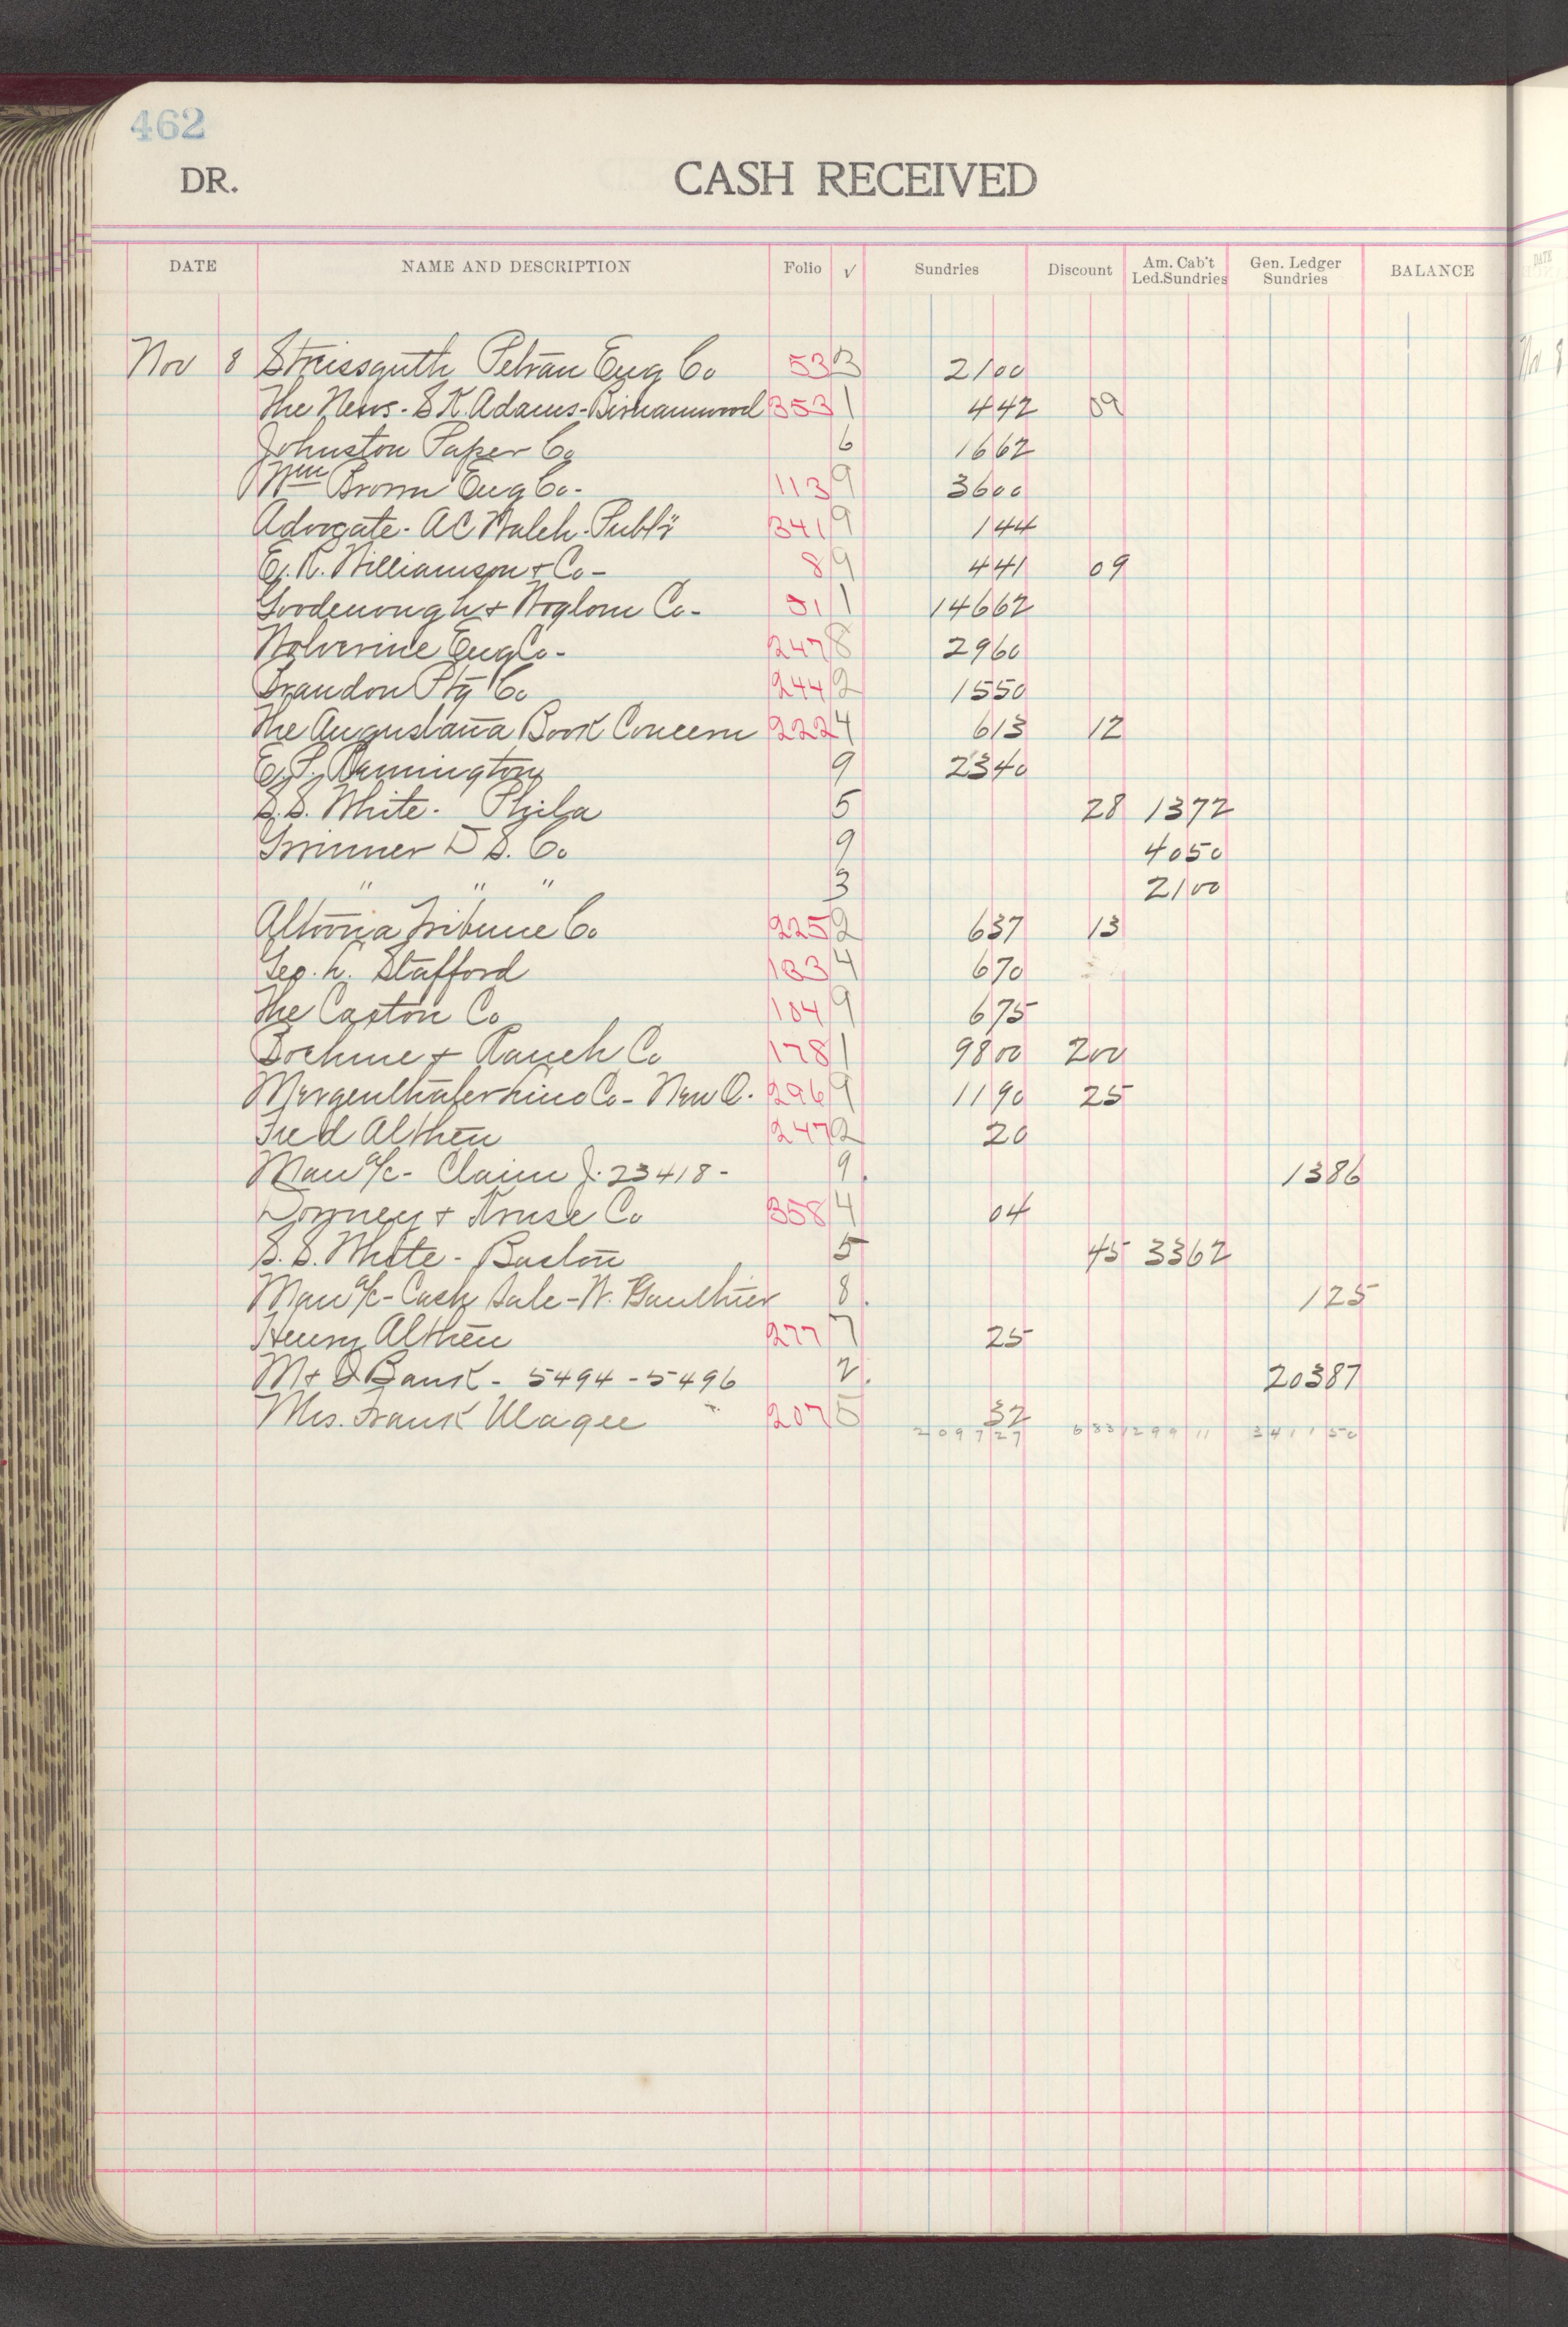 462
DR. CASH RECEIVED
DATE NAME AND DESCRIPTION Folio √ Sundries Discount Am. Cab't Led.Sundries Gen. Ledger Sundries BALANCE
Nov 8 Streissguth Petran Eng Co 53 3 2100
The News - S K. Adams - Birnamwood 353 1 442 09
Johnston Paper Co 6 1662
Wm Brown Eng Co - 113 9 3600
Advocate - A C Walch - Publr 341 9 144
E. R. Williamson & Co - 8 9 441 09
Goodenough & Woglom Co - 51 1 14662
Wolverine Eng Co - 247 8 2960
Brandon Ptg Co 244 2 1550
The Augustana Book Concern 222 4 613 12
E. P. Remington 9 2340
S. S. White - Phila 5 28 1372
Trinner D S. Co 9 4050
" " " 3 2100
Altoona Tribune Co 225 2 637 13
Geo. L. Stafford 133 4 670
The Caxton Co 104 9 675
Boehme & Rauch Co 178 1 9800 200
Mergenthaler Lino Co - New O. 296 9 1190 25
Fred Althen 247 2 20
Man a/c - Claim J. 23418 - 9. 1386
Dorney & Kruse Co 358 4 04
S. S. White - Boston 5 45 3362
Man a/c - Cash Sale - W. Gauthier 8. 125
Henry Althen 277 7 25
M & I Bank - 5494 - 5496 2. 20387
Mrs. Frank Magee 207 5 32
2097 27 6833 1299 11 3411 50
DATE
Nov 8